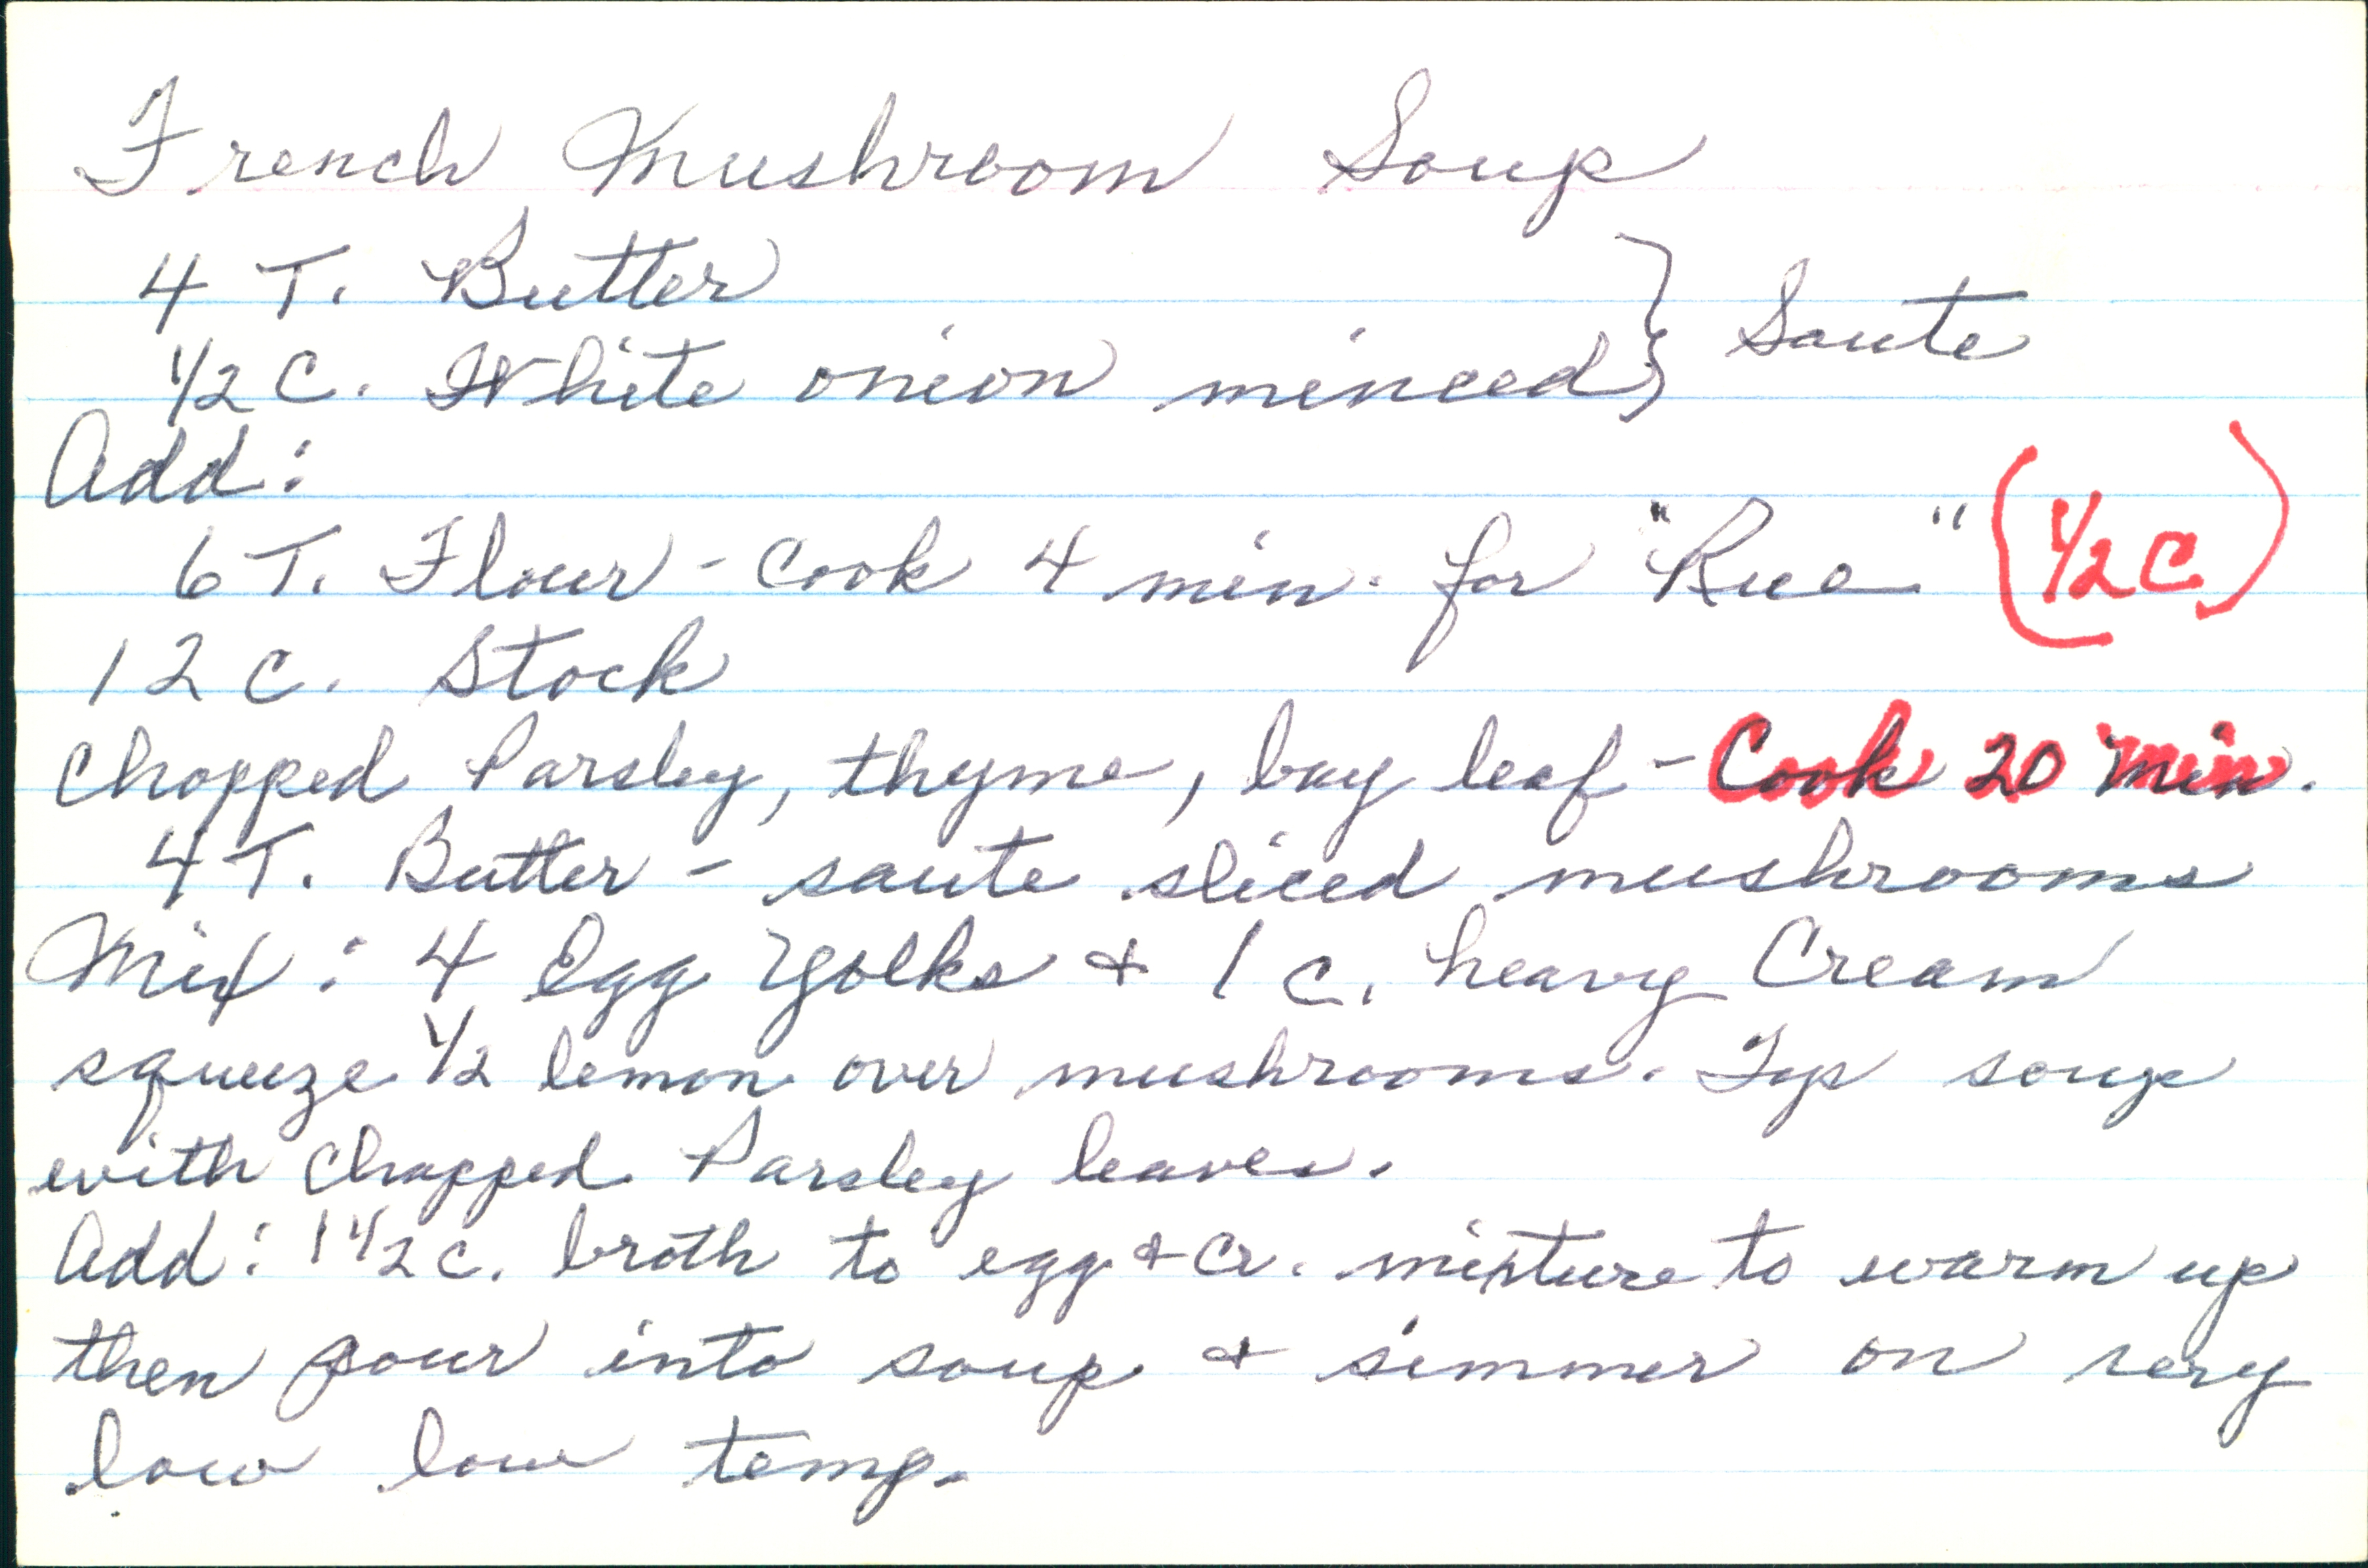 French Mushroom Soup
4 T. Butter
1/2 C. White onion minced } Saute
Add:
6 T. Flour - Cook 4 min. for "Rue" (1/2 C.)
12 C. Stock
Chopped Parsley, thyme, bay leaf - Cook 20 min.
4 T. Butter - saute sliced mushrooms
Mix: 4 Egg Yolks + 1 c. heavy Cream
squeeze 1/2 lemon over mushrooms. Top soup
with Chopped Parsley leaves.
Add: 1 1/2 c. broth to egg + Cr. mixture to warm up
then pour into soup + simmer on very
low low temp.